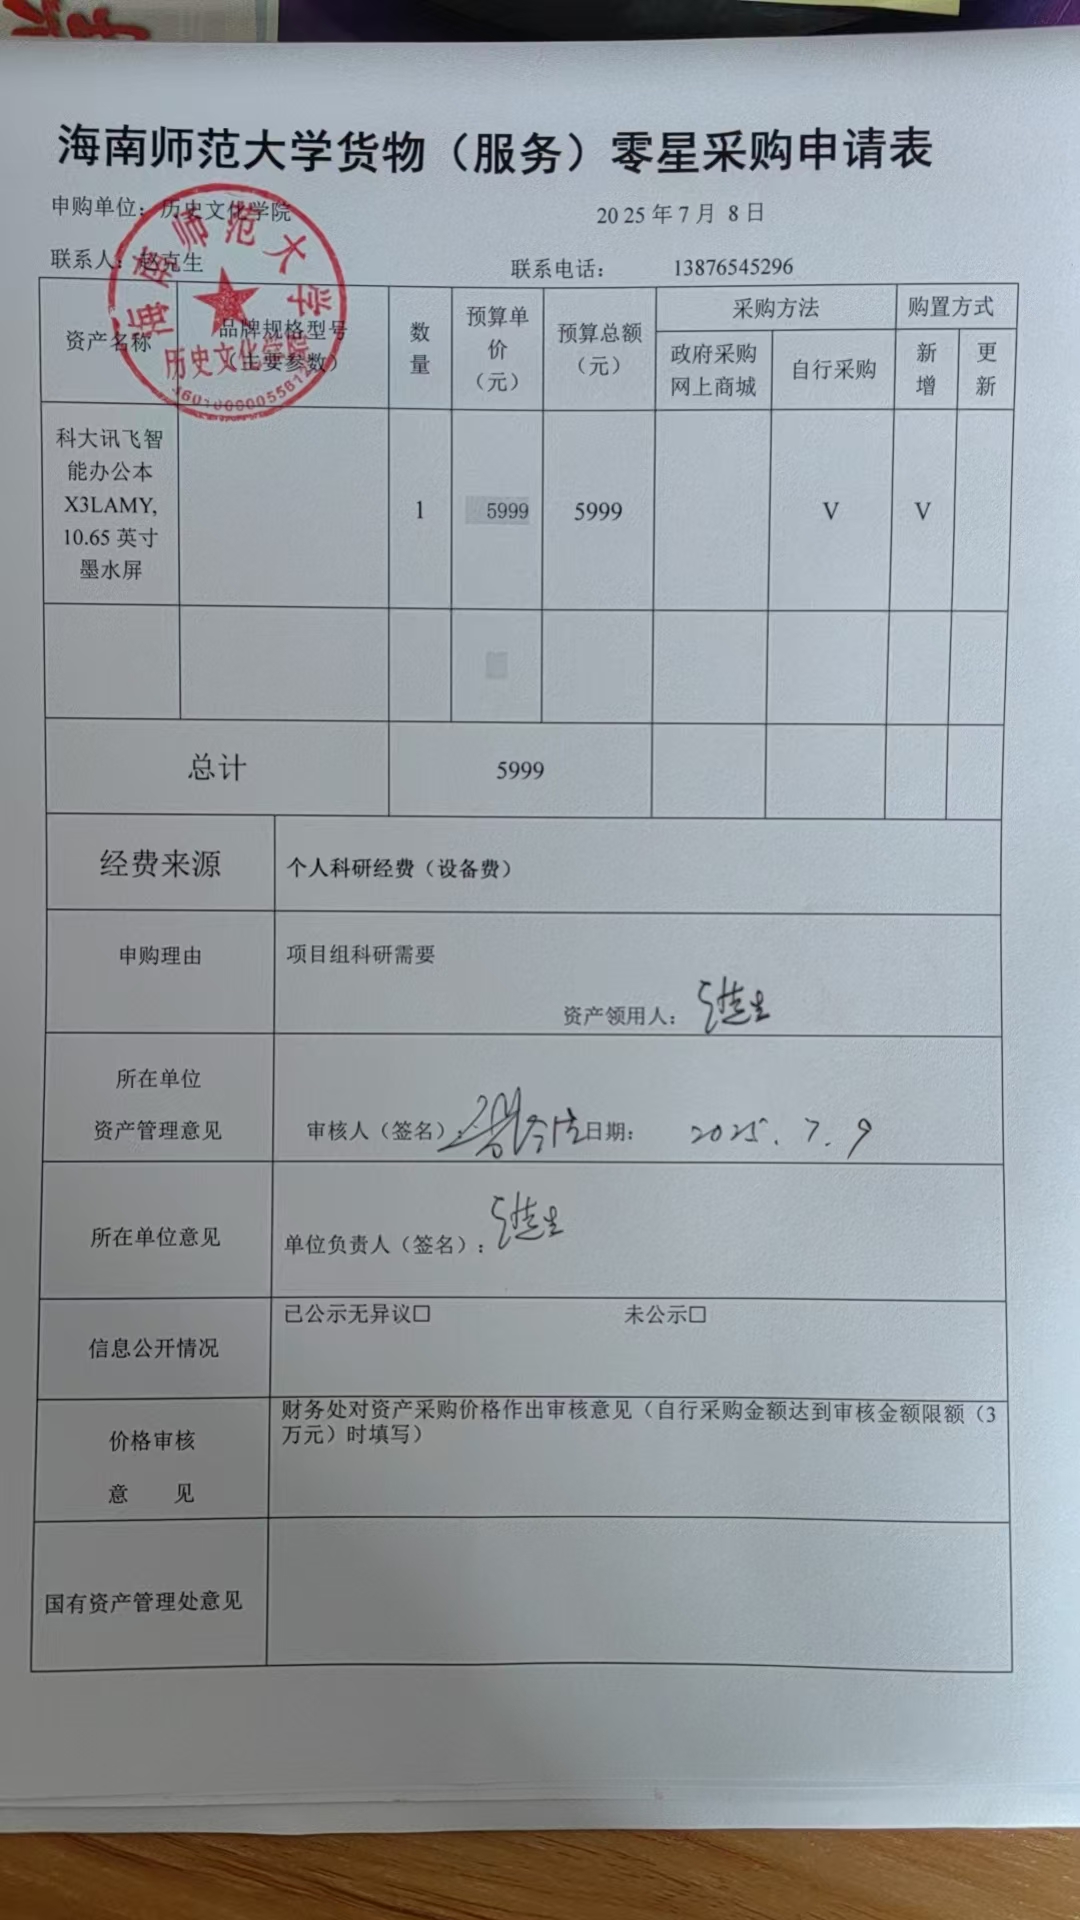 海南师范大学货物（服务）零星采购申请表
申购单位：历史文化学院
2025年7月 8日
联系人：赵克生
联系电话： 13876545296
海南师范大学
历史文化学院
资产名称
品牌规格型号
（主要参数）
数
量
预算单
价
（元）
预算总额
（元）
采购方法
购置方式
政府采购
网上商城
自行采购
新
增
更
新
科大讯飞智
能办公本
X3LAMY,
10.65 英寸
墨水屏
1
5999
5999
V
V
总计
5999
经费来源
个人科研经费（设备费）
申购理由
项目组科研需要
资产领用人：
所在单位
资产管理意见
审核人（签名）：
日期： 2025.7.9
所在单位意见
单位负责人（签名）：
信息公开情况
已公示无异议□ 未公示□
价格审核
意 见
财务处对资产采购价格作出审核意见（自行采购金额达到审核金额限额（3
万元）时填写）
国有资产管理处意见